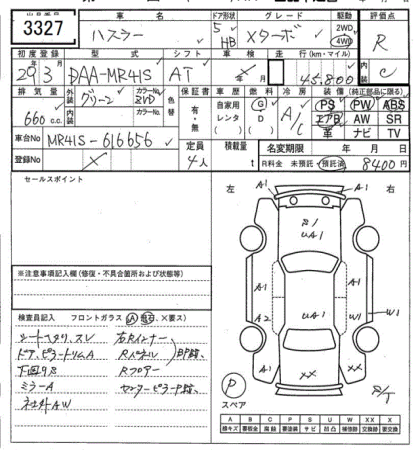 3327
車名 ドア形状 グレード 駆動 評価点
ハスラー 5 HB Xターボ 2WD 4WD R
初度登録 型式 シフト 車検 走行(km・マイル) 内装
29 3 DAA-MR41S AT 45,800 C
排気量 外装 カラーNo. 色替 保証書 車歴 燃料 冷房 装備 (純正部品に限る)
660 c.c. グリーン 有・無 自家用 レンタ G D A/C PS PW ABS
エアB AW SR
革 ナビ TV
車台No MR41S-616656 定員 積載量 名変期限 年 月 日
登録No 4人 t R料金 未預託 預託済 8400円
セールスポイント
左 右
A1 A1
S1
UA1
A1 A1
A2 UA1 W1 W1
A1 A1
XX XX
P
スペア
※注意事項記入欄 (修復・不具合箇所および状態等)
検査員記入 フロントガラス (A 飛石、×要ス)
シートスタリ、スレ 右Rインナー
ドア、ピラートリムA Rパネル
下回りS Rフロアー
ミラーA センターピラー
社外AW
A B C P S U W X XX
線キズ 要板金 腐食 要塗装 サビ 凹凸 補修跡 要交換 交換跡